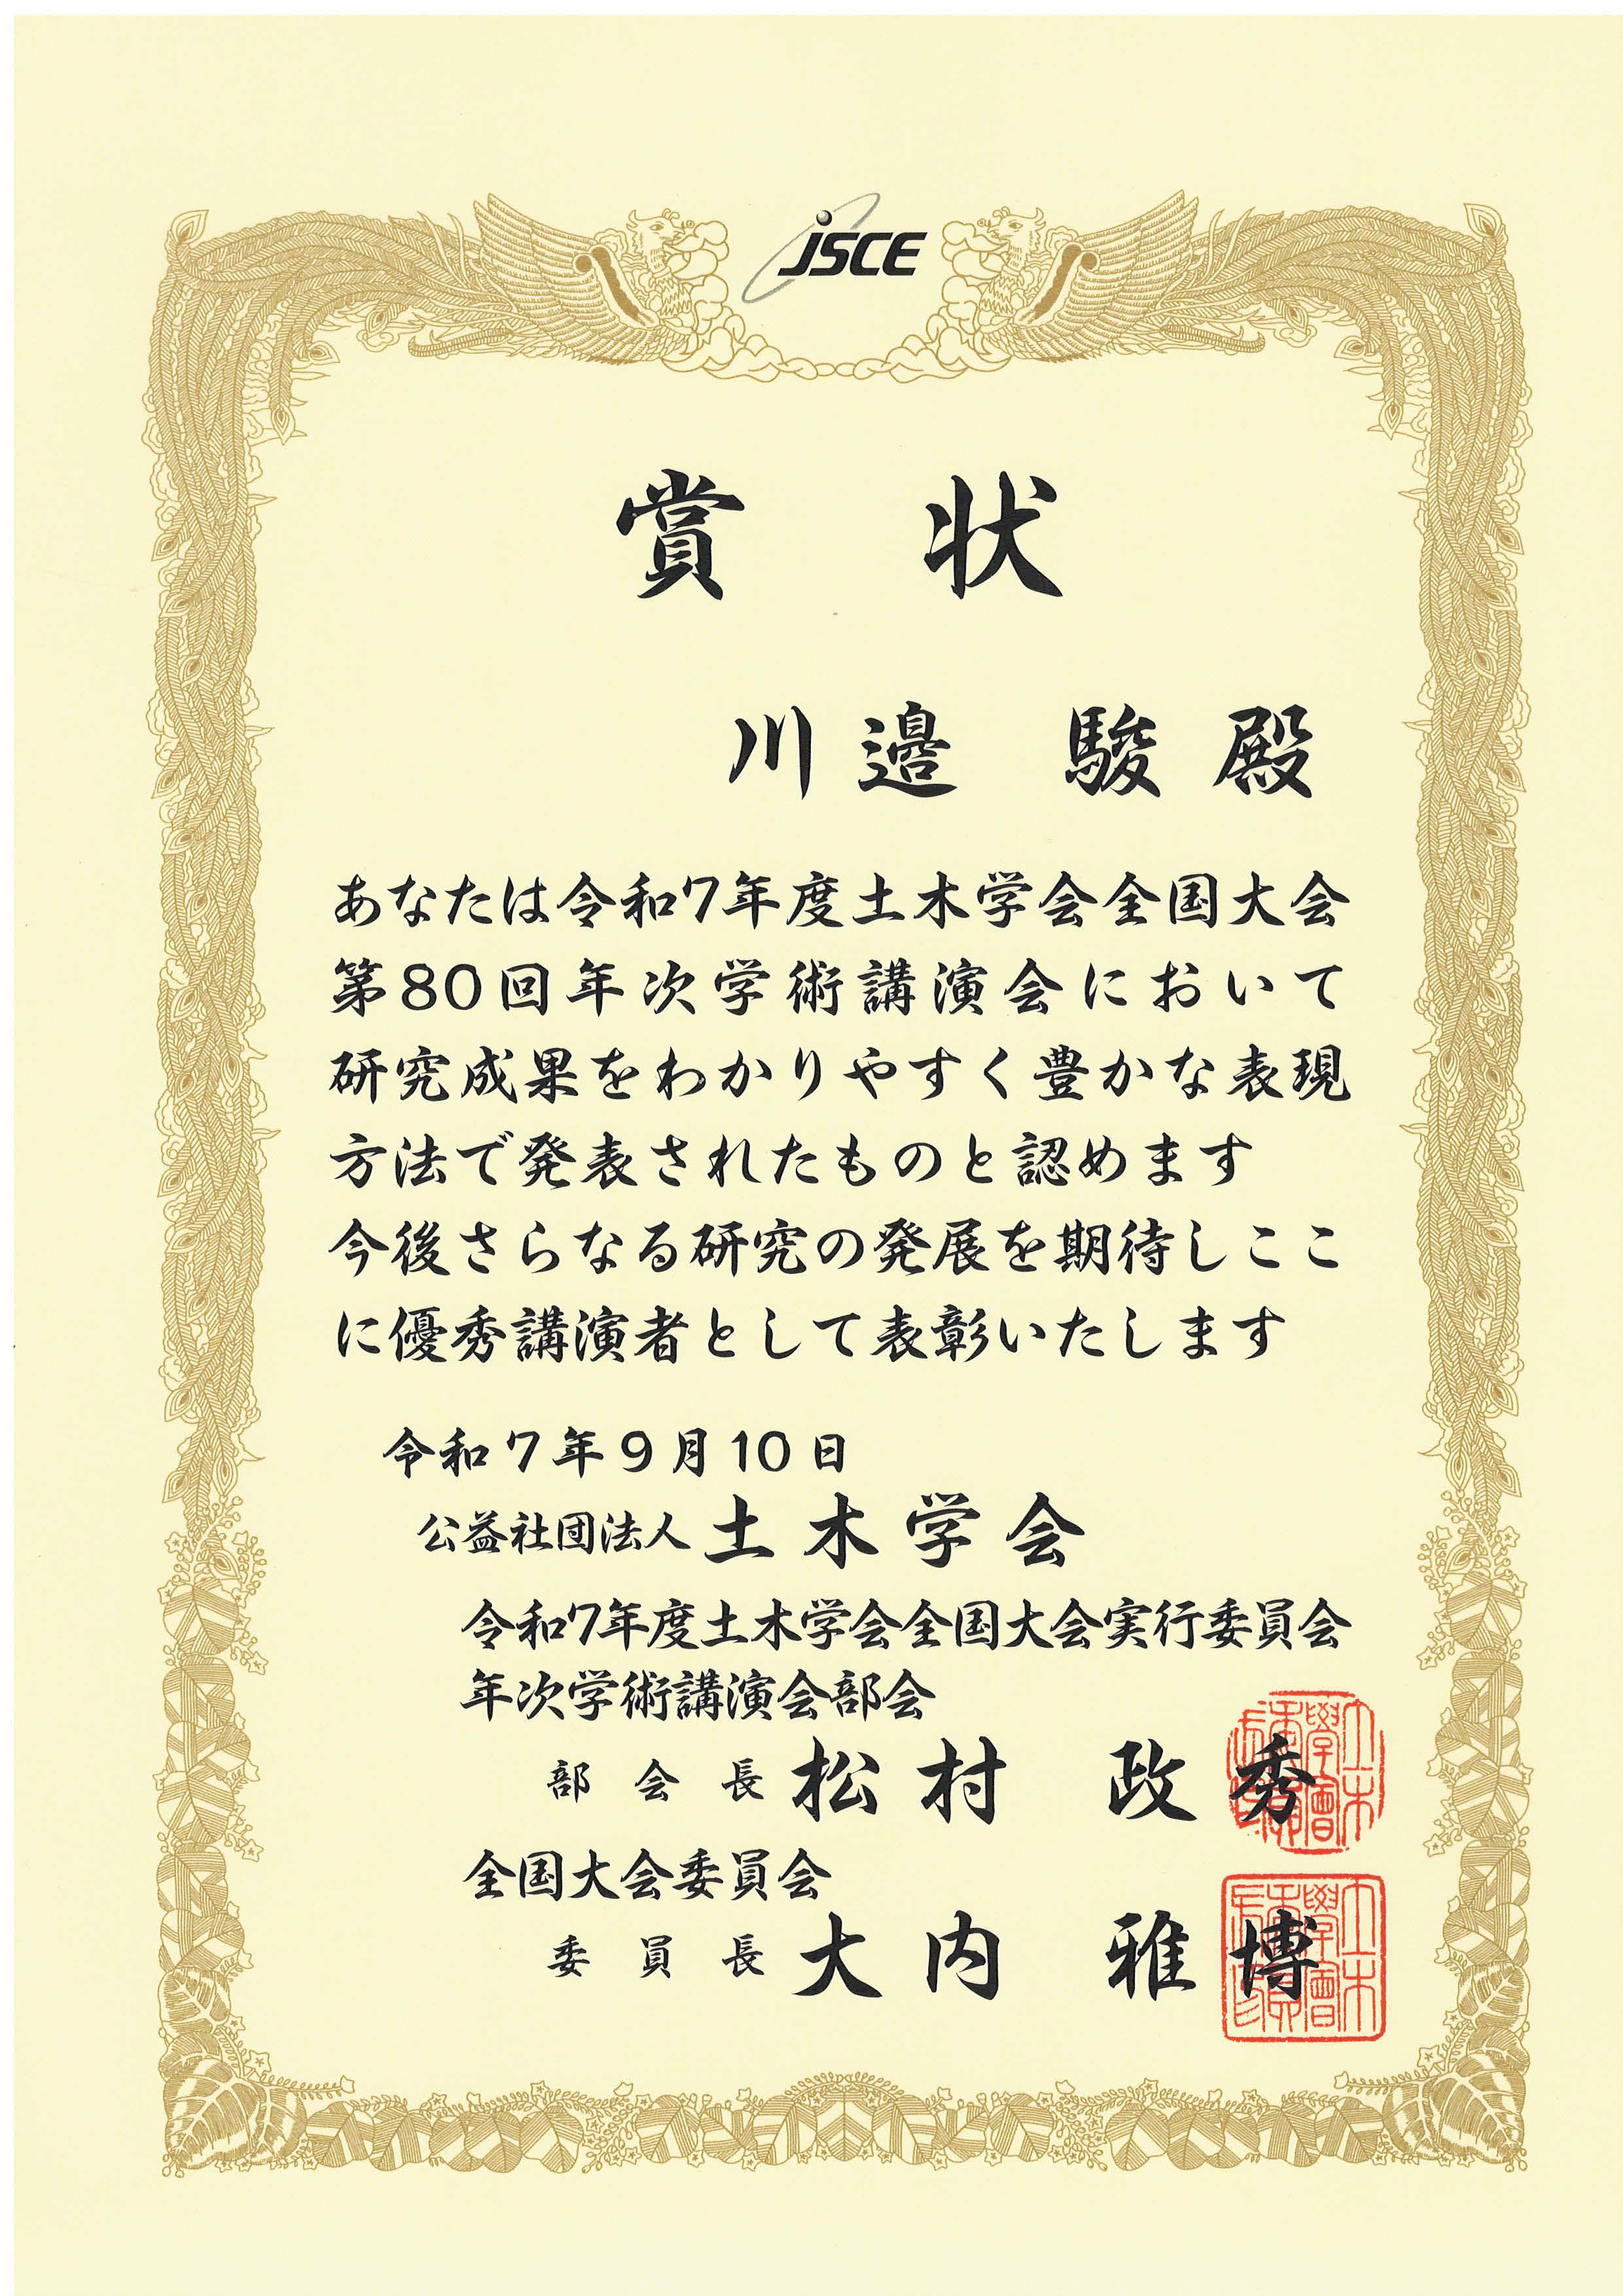 JSCE
賞状
川邉 駿 殿
あなたは令和7年度土木学会全国大会
第80回年次学術講演会において
研究成果をわかりやすく豊かな表現
方法で発表されたものと認めます
今後さらなる研究の発展を期待しここ
に優秀講演者として表彰いたします
令和7年9月10日
公益社団法人 土木学会
令和7年度土木学会全国大会実行委員会
年次学術講演会部会
部会長 松村 政秀
全国大会委員会
委員長 大内 雅博